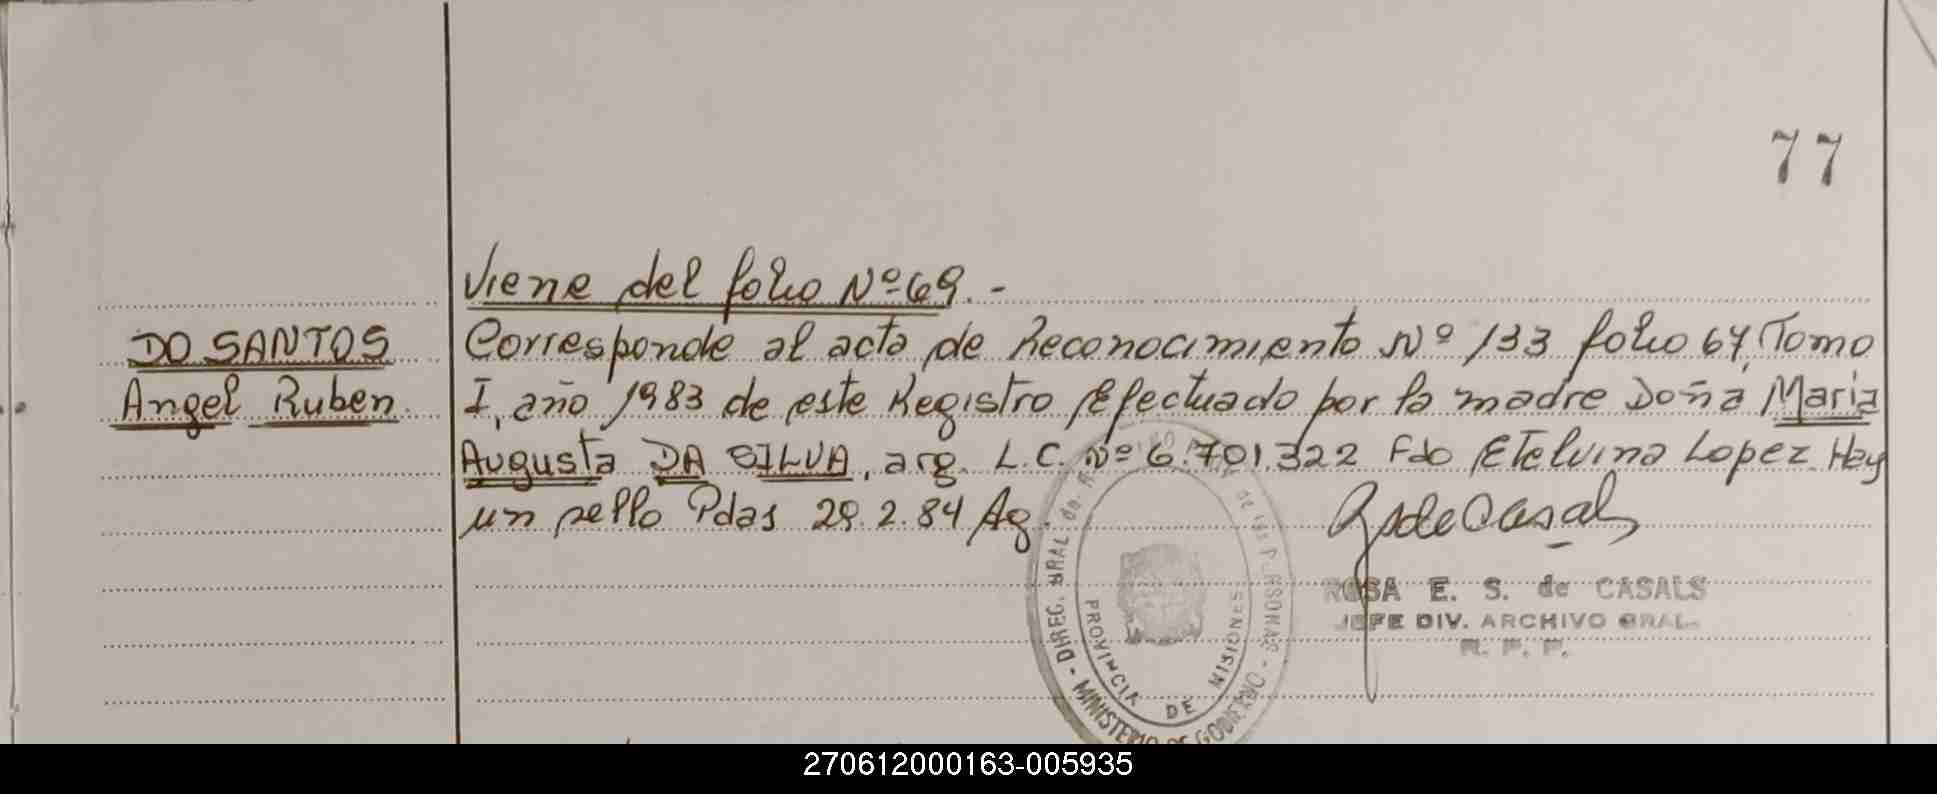 77
Viene del folio Nº 69.-
DO SANTOS
Angel Ruben.
Corresponde al acta de Reconocimiento Nº 133 folio 67, Tomo
I, año 1983 de este Registro Efectuado por la madre Doña Maria
Augusta DA SILVA, arg. L.C. Nº 6.701.322 Fdo Etelvina Lopez. Hay
un sello Pdas 29.2.84 Ag.
ROSA E. S. de CASALS
JEFE DIV. ARCHIVO GRAL.
R. P. P.
DIREC. GRAL de las PERSONAS - MINISTERIO DE GOBIERNO -
PROVINCIA DE MISIONES
270612000163-005935